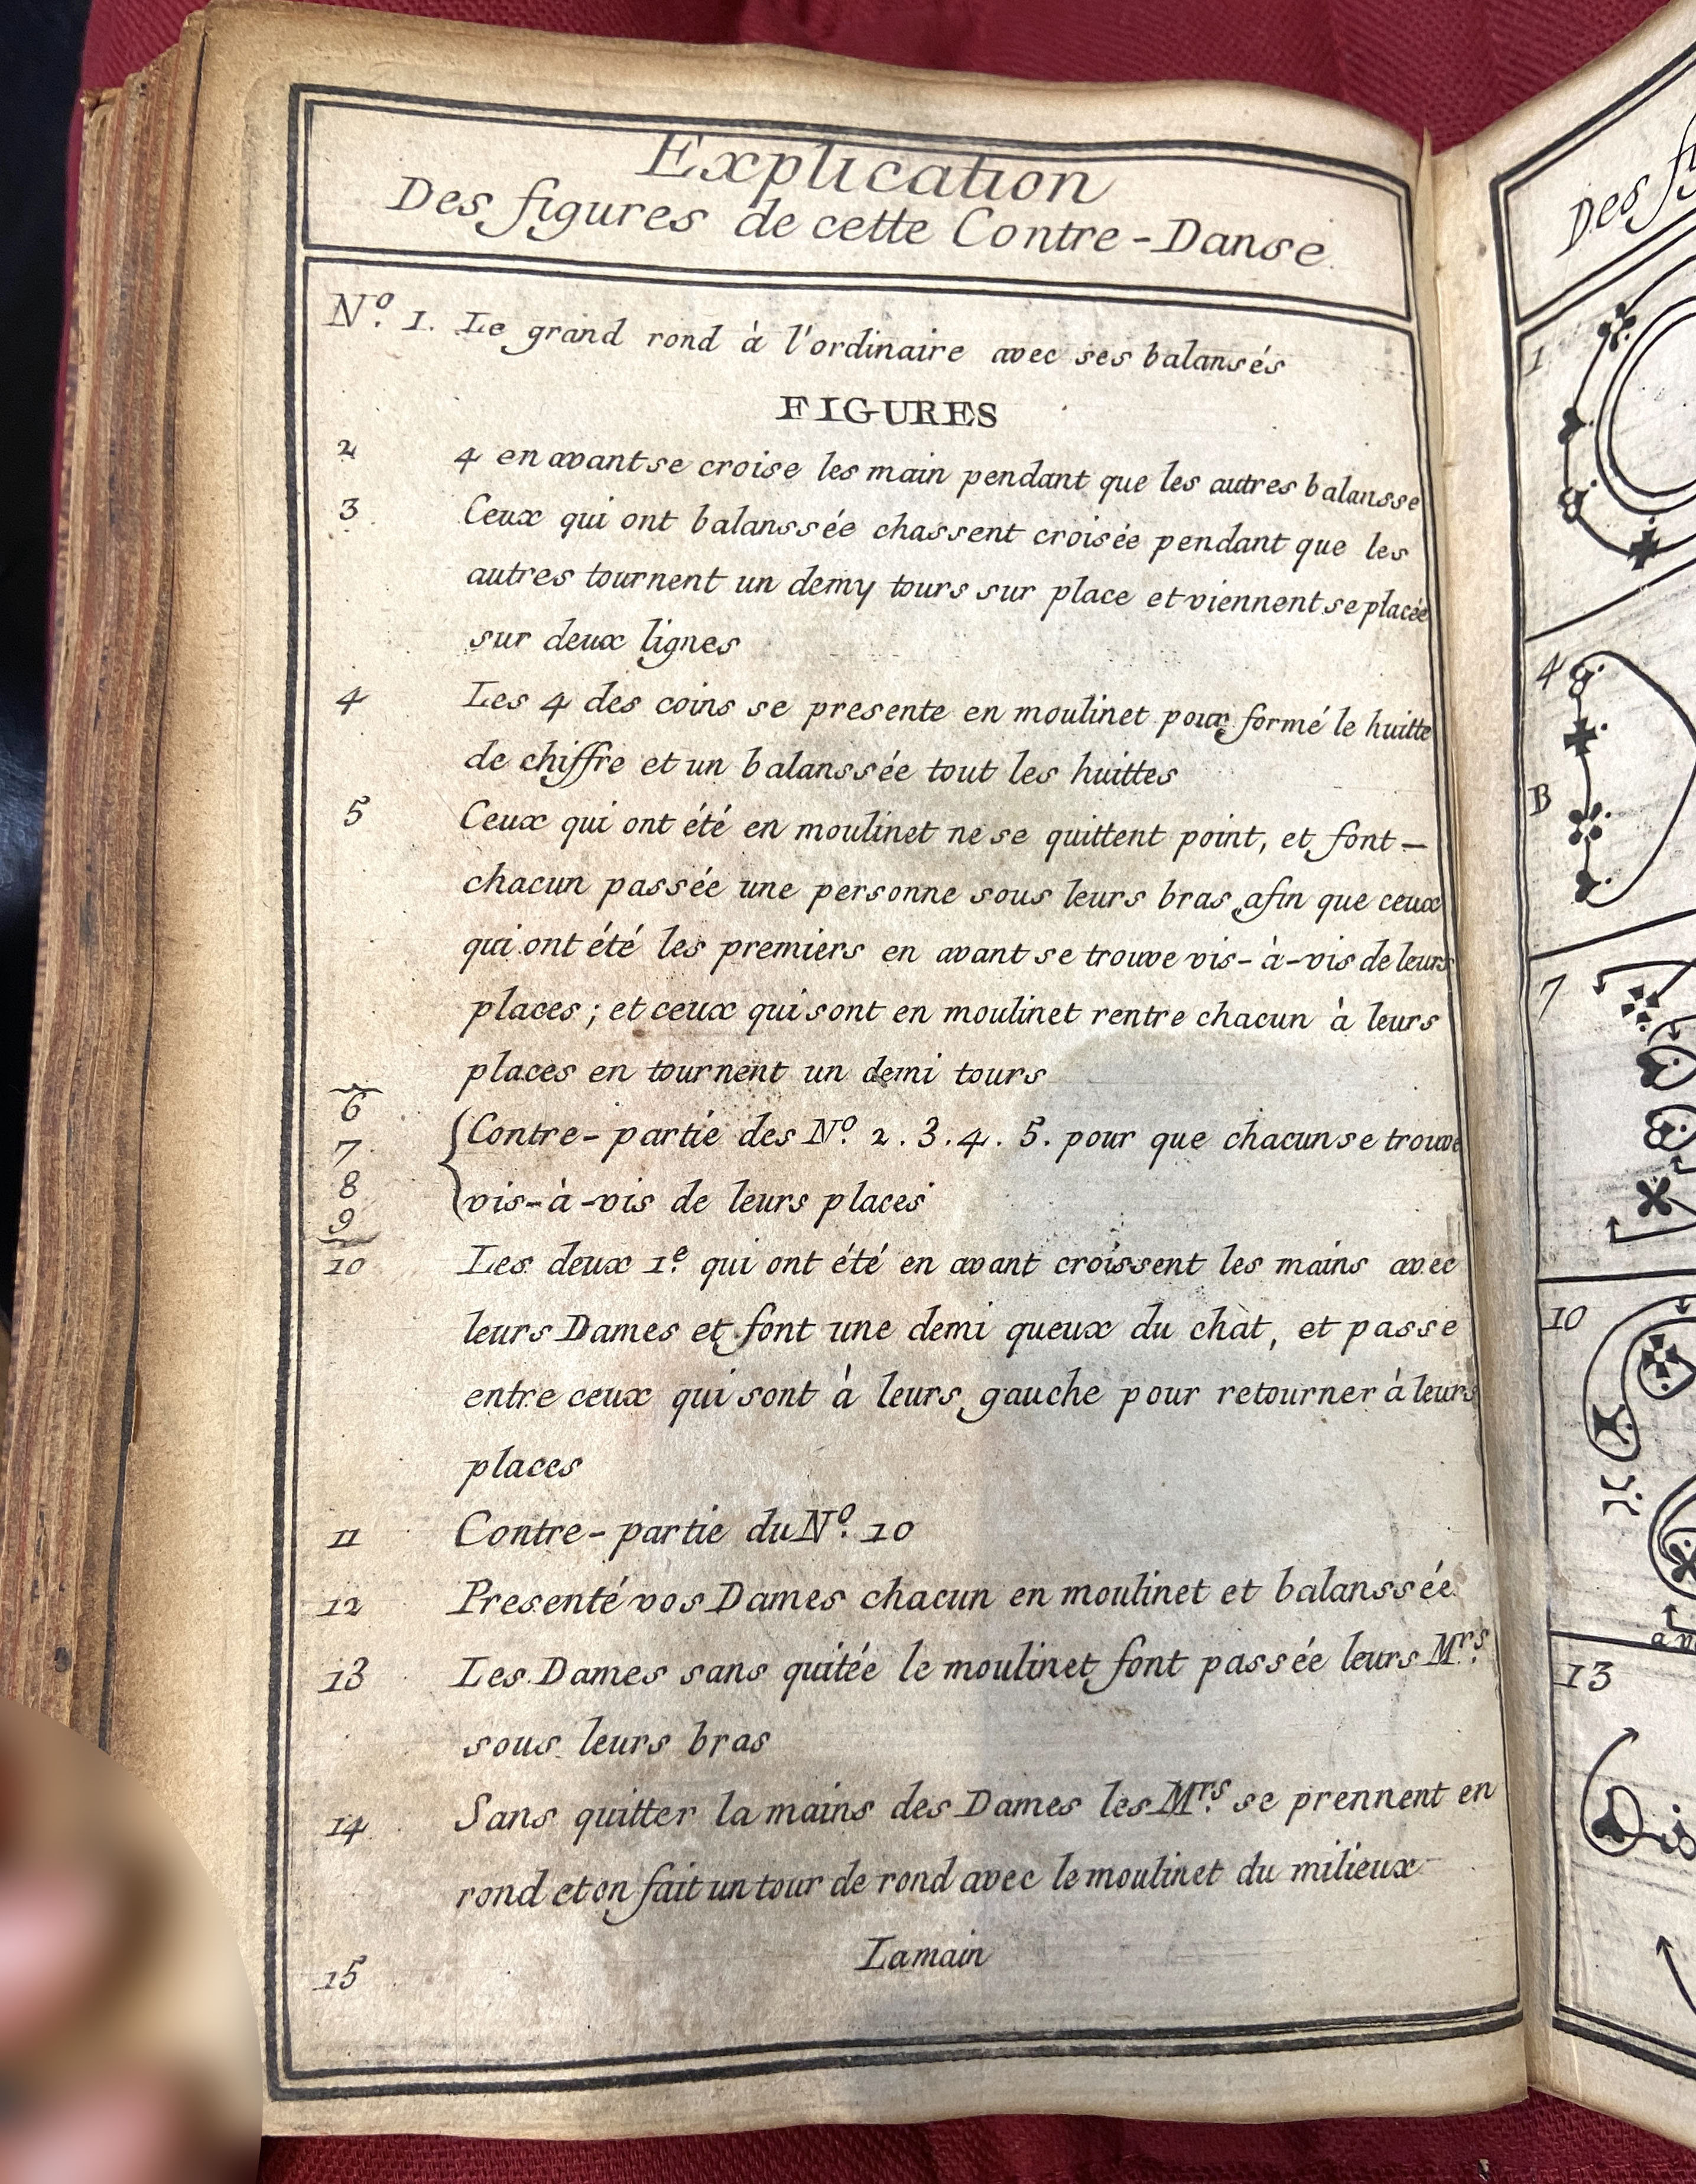 Explication
Des figures de cette Contre-Danse
Nº. 1. Le grand rond à l'ordinaire avec ses balansés
FIGURES
2 4 en avant se croise les main pendant que les autres balansse
3 Ceux qui ont balanssée chassent croisée pendant que les
autres tournent un demy tours sur place et viennent se placée
sur deux lignes
4 Les 4 des coins se presente en moulinet pour formé le huitte
de chiffre et un balanssée tout les huittes
5 Ceux qui ont été en moulinet ne se quittent point, et font –
chacun passée une personne sous leurs bras afin que ceux
qui ont été les premiers en avant se trouve vis-à-vis de leurs
places ; et ceux qui sont en moulinet rentre chacun à leurs
places en tournent un demi tours
6
7
8
9
Contre-partie des Nº. 2. 3. 4. 5. pour que chacun se trouve
vis-à-vis de leurs places
10 Les deux 1e. qui ont été en avant croissent les mains avec
leurs Dames et font une demi queux du chat, et passe
entre ceux qui sont à leurs gauche pour retourner à leurs
places
11 Contre-partie du Nº. 10
12 Presenté vos Dames chacun en moulinet et balanssée
13 Les Dames sans quitée le moulinet font passée leurs Mrs.
sous leurs bras
14 Sans quitter la mains des Dames les Mrs. se prennent en
rond et on fait un tour de rond avec le moulinet du milieux
15 La main
Des
1
4
B
7
10
13